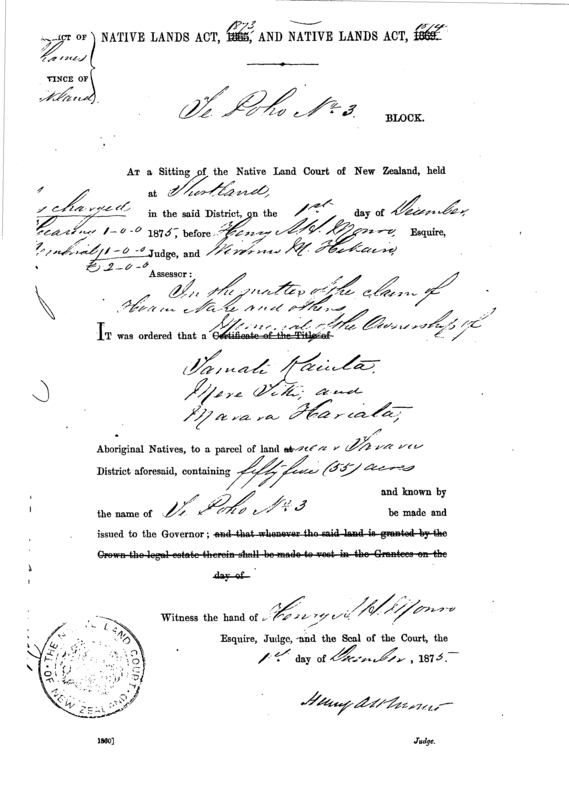 ICT OF } NATIVE LANDS ACT, 1873 1865, AND NATIVE LANDS ACT, 1874 1869.
Thames
VINCE OF
kland
Te Poho No. 3. BLOCK.
AT a Sitting of the Native Land Court of New Zealand, held
at Shortland,
s charged in the said District, on the 1st day of December,
hearing 1-0-0 1875, before Henry A. H. Monro, Esquire,
1-0-0 Judge, and
£2-0-0 Assessor:
In the matter of the claim of
and others
IT was ordered that a Certificate of the Title of Memorial of the Ownership of
Mere Titi; and
Aboriginal Natives, to a parcel of land at near
District aforesaid, containing fifty five (55) acres
and known by
the name of Te Poho No. 3 be made and
issued to the Governor; and that whenever the said land is granted by the
Crown the legal estate therein shall be made to vest in the Grantees on the
day of
Witness the hand of Henry A. H. Monro
Esquire, Judge, and the Seal of the Court, the
1st day of December, 1875.
Henry A H Monro
OF THE N LAND COURT NEW ZEALAND
1860] Judge.